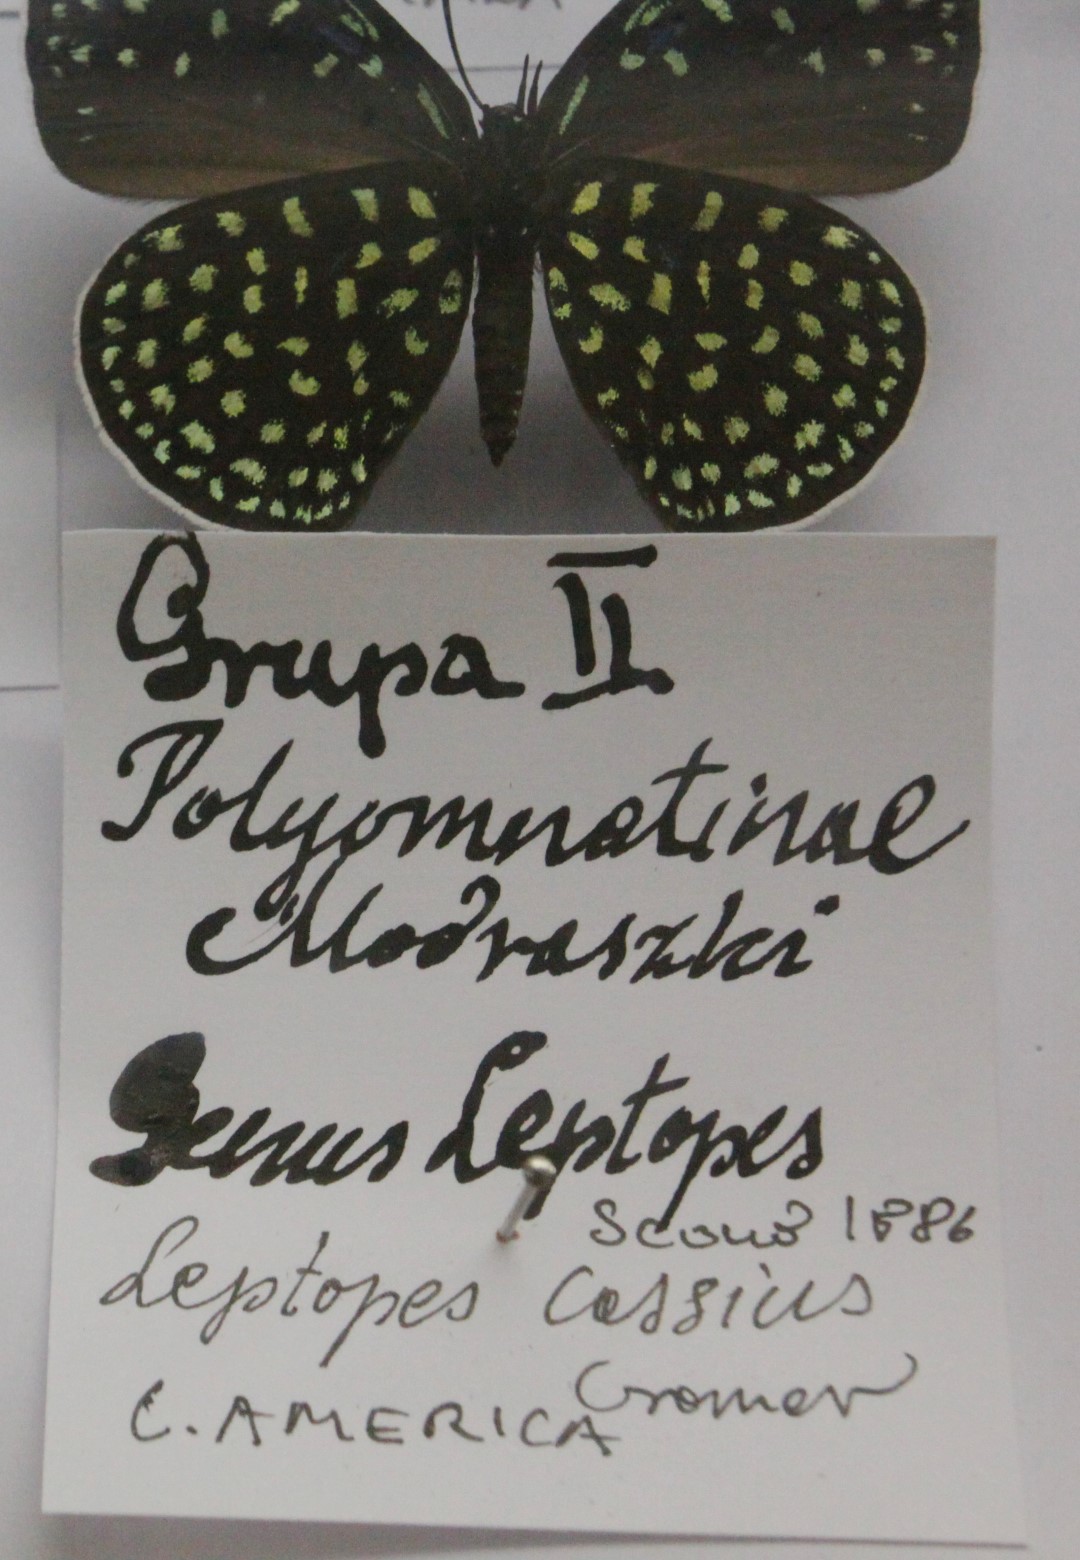 Grupa II
Polyommatinae
Modraszki
Genus Leptopes
Scoud 1886
Leptopes Cassius
Cromer
C. AMERICA